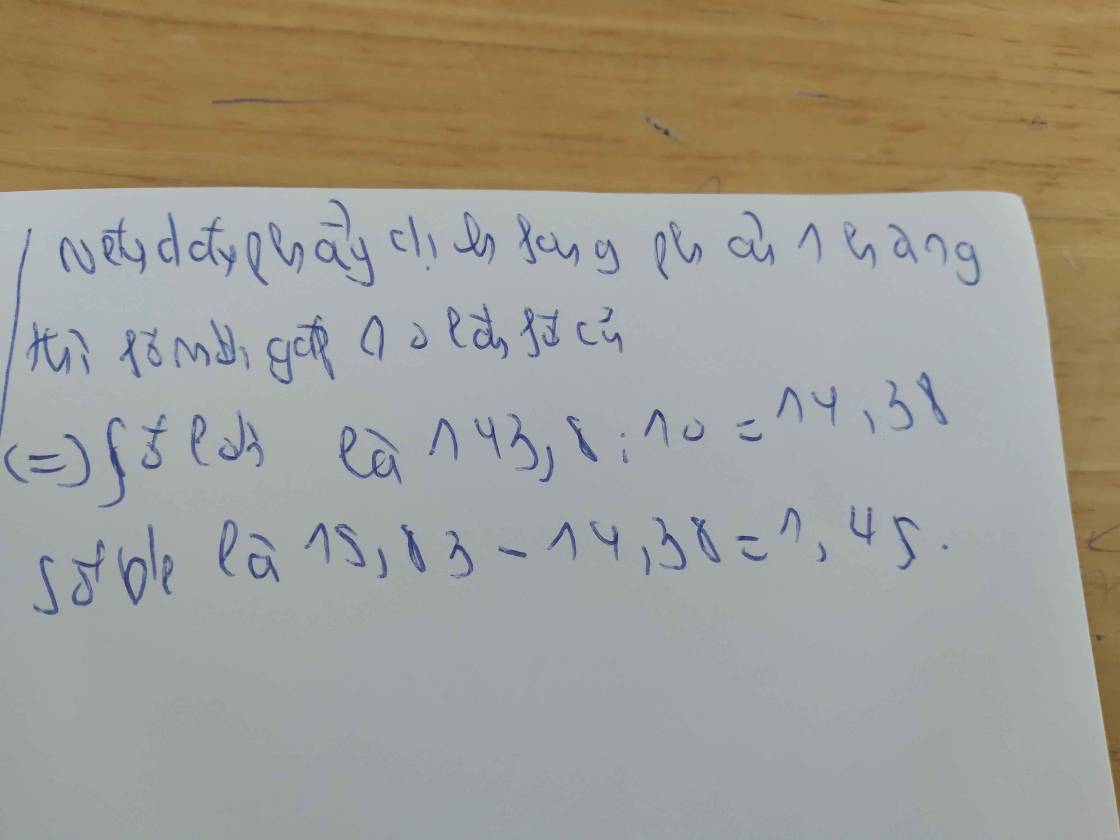 Nếu dấu phẩy dịch sang phải 1 hàng
thì số mới gấp 10 lần số cũ
(=) Số lớn là 143,8 : 10 = 14,38
Số bé là 15,83 - 14,38 = 1,45.